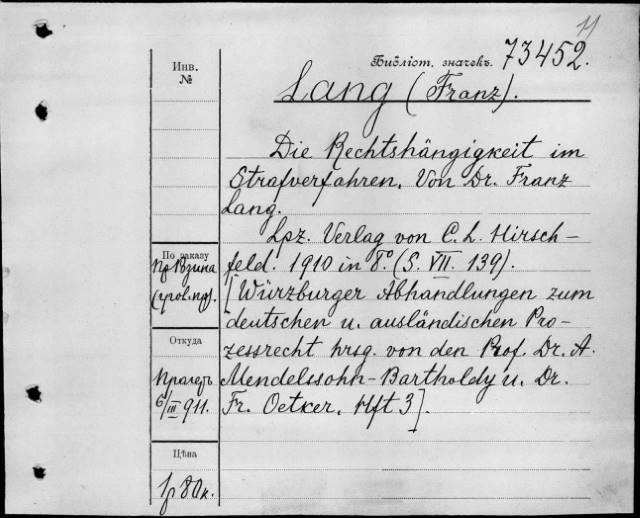 11
Инв.
№
Библіот. значекъ. 73452.
Lang (Franz).
Die Rechtshängigkeit im
Strafverfahren. Von Dr. Franz
Lang.
Lpz. Verlag von C. L. Hirsch-
feld. 1910 in 8º. (S. VII. 139).
[Würzburger Abhandlungen zum
deutschen u. ausländischen Pro-
zessrecht hrsg. von den Prof. Dr. A.
Mendelssohn-Bartholdy u. Dr.
Fr. Oetker. Hft 3].
По заказу
Откуда
6/III 911.
Цѣна
1 р 80 к.